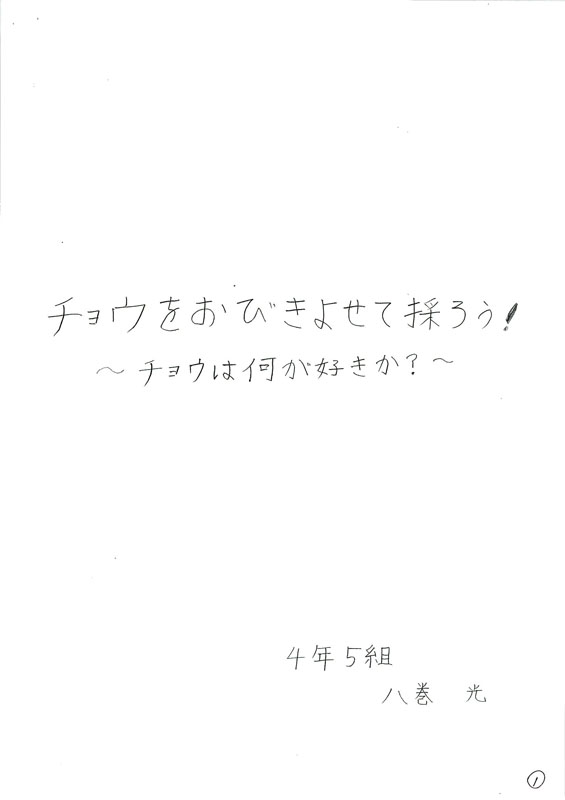 チョウをおびきよせて採ろう!
～チョウは何が好きか?～
4年5組
八巻 光
①